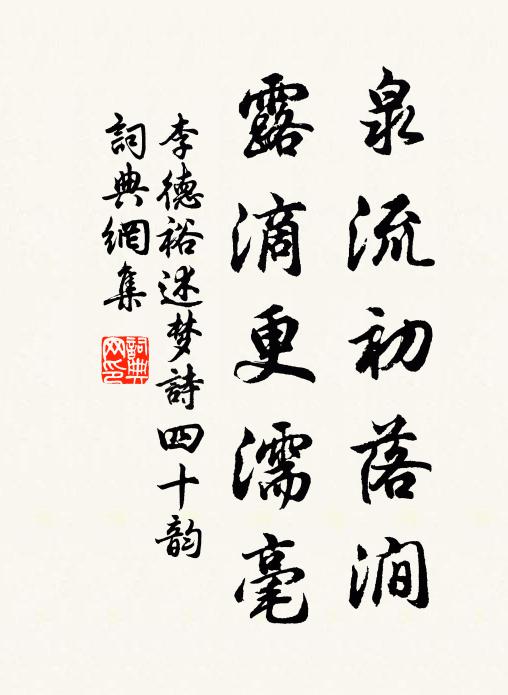 泉流初落澗
露滴更濡毫
李德裕述梦詩四十韵
詞典網集
詞典
网印